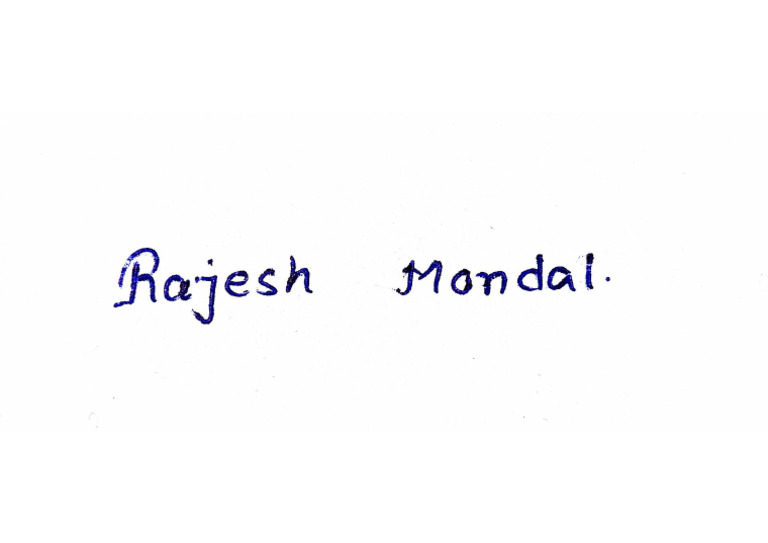 Rajesh Mondal.